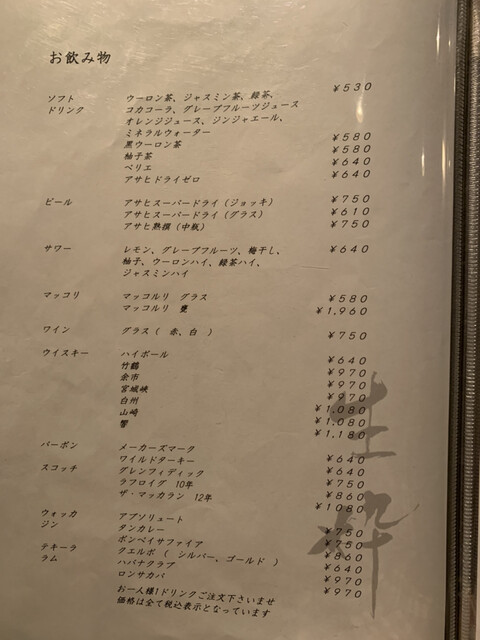 お飲み物
ソフト ウーロン茶、ジャスミン茶、緑茶、 ¥530
ドリンク コカコーラ、グレープフルーツジュース
オレンジジュース、ジンジャエール、
ミネラルウォーター
黒ウーロン茶 ¥580
柚子茶 ¥580
ペリエ ¥640
アサヒドライゼロ ¥640
ビール アサヒスーパードライ(ジョッキ) ¥750
アサヒスーパードライ(グラス) ¥610
アサヒ熟撰(中瓶) ¥750
サワー レモン、グレープフルーツ、梅干し、 ¥640
柚子、ウーロンハイ、緑茶ハイ、
ジャスミンハイ
マッコリ マッコルリ グラス ¥580
マッコルリ 甕 ¥1,960
ワイン グラス( 赤、白 ) ¥750
ウイスキー ハイボール ¥640
竹鶴 ¥970
余市 ¥970
宮城峡 ¥970
白州 ¥1,080
山崎 ¥1,080
響 ¥1,180
バーボン メーカーズマーク ¥640
ワイルドターキー ¥640
スコッチ グレンフィディック ¥750
ラフロイグ 10年 ¥860
ザ・マッカラン 12年 ¥1080
ウォッカ アブソリュート ¥750
ジン タンカレー ¥750
ボンベイサファイア ¥860
テキーラ クエルボ( シルバー、ゴールド ) ¥640
ラム ハバナクラブ ¥970
ロンサカパ ¥970
お一人様1ドリンクご注文下さいませ
価格は全て税込表示となっています
生粋